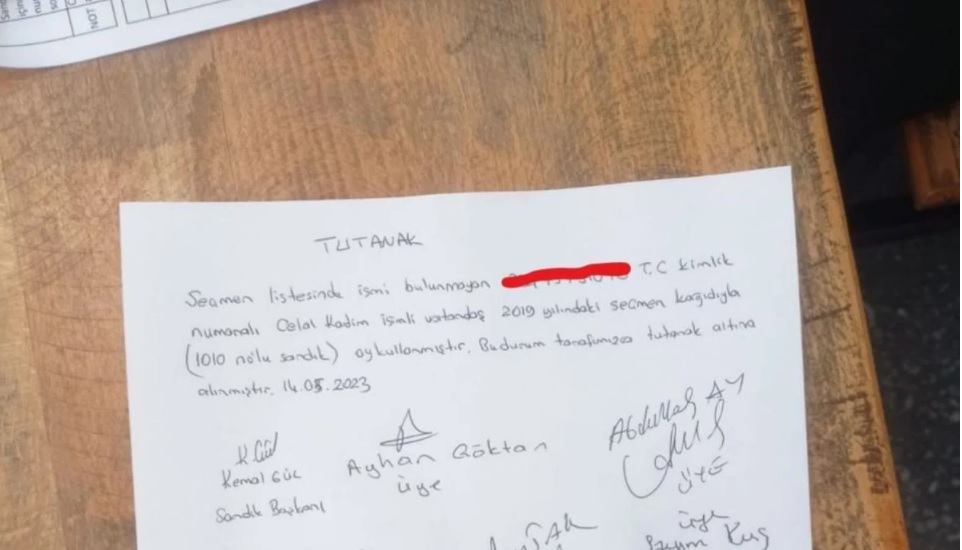 NOT
TUTANAK
Seçmen listesinde ismi bulunmayan T.C kimlik
numaralı Celal Kadim isimli vatandaş 2019 yılındaki seçmen kağıdıyla
(1010 nolu sandık) oy kullanmıştır. Bu durum tarafımızca tutanak altına
alınmıştır. 14.05.2023
K Güç
Kemal Güç
Sandık Başkanı
Ayhan Göktan
Üye
Abdullah AY
ÜYE
Üye
Kuş